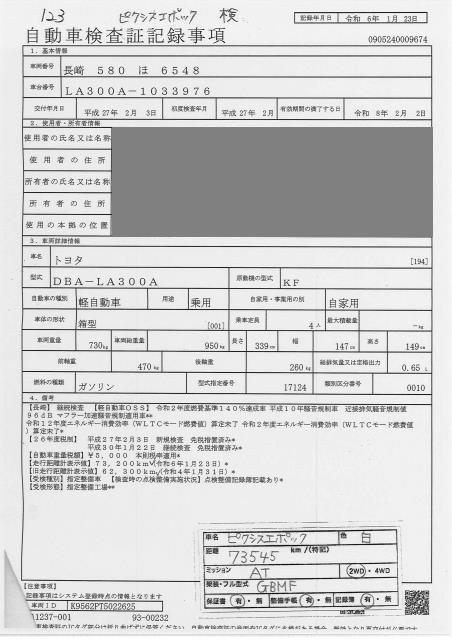 123 ピクシスエポック 検
記録年月日 令和 6年 1月 23日
自動車検査証記録事項 0905240009674
1. 基本情報
車両番号 長崎 580 ほ 6548
車台番号 LA300A-1033976
交付年月日 平成 27年 2月 3日 初度検査年月 平成 27年 2月 有効期間の満了する日 令和 8年 2月 2日
2. 使用者・所有者情報
使用者の氏名又は名称
使用者の住所
所有者の氏名又は名称
所有者の住所
使用の本拠の位置
3. 車両詳細情報
車名 トヨタ [194]
型式 DBA-LA300A 原動機の型式 KF
自動車の種別 軽自動車 用途 乗用 自家用・事業用の別 自家用
車体の形状 箱型 [001] 乗車定員 4人 最大積載量 -kg
車両重量 730kg 車両総重量 950kg 長さ 339cm 幅 147cm 高さ 149cm
前軸重 470kg 後軸重 260kg 総排気量又は定格出力 0.65 L
燃料の種類 ガソリン 型式指定番号 17124 類別区分番号 0010
4. 備考
【長崎】 継続検査 【軽自動車OSS】 令和2年度燃費基準140%達成車 平成10年騒音規制車 近接排気騒音規制値
96dB マフラー加速騒音規制適用車**
令和12年度エネルギー消費効率(WLTCモード燃費値)算定未了 令和2年度エネルギー消費効率(WLTCモード燃費値)
算定未了*
【26年度税制】 平成27年2月3日 新規検査 免税措置済み*
平成30年1月22日 継続検査 免税措置済み*
【自動車重量税額】¥5,000 本則税率適用*
【走行距離計表示値】73,200km(令和6年1月23日)*
【旧走行距離計表示値】62,300km(令和4年1月31日)*
【受検種別】指定整備車 【検査時の点検整備実施状況】点検整備記録簿記載あり*
【受検形態】指定整備工場**
車名 ピクシスエポック 色 白
距離 73545 km/(特記)
ミッション AT 2WD・4WD
架装・フル型式 GBMF
保証書 有・無 整備手帳 有・無 記録簿 有・無
【注意事項】
記録事項はシステム登録時点の情報となります
車両ID K9562PT5022625
11237-001 93-00232